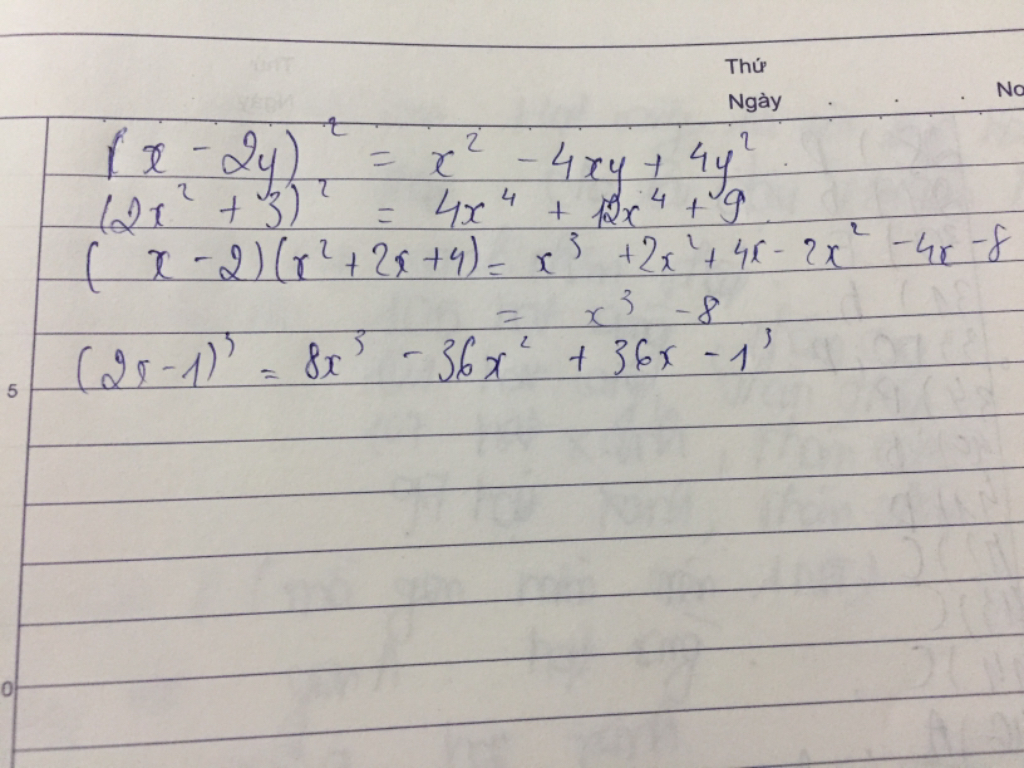 Thứ
Ngày No
(x - 2y)² = x² - 4xy + 4y².
(2x² + 3)² = 4x⁴ + 12x⁴ + 9.
( x - 2)(x² + 2x + 4) = x³ + 2x² + 4x - 2x² - 4x - 8
= x³ - 8
(2x - 1)³ = 8x³ - 36x² + 36x - 1³
5
0